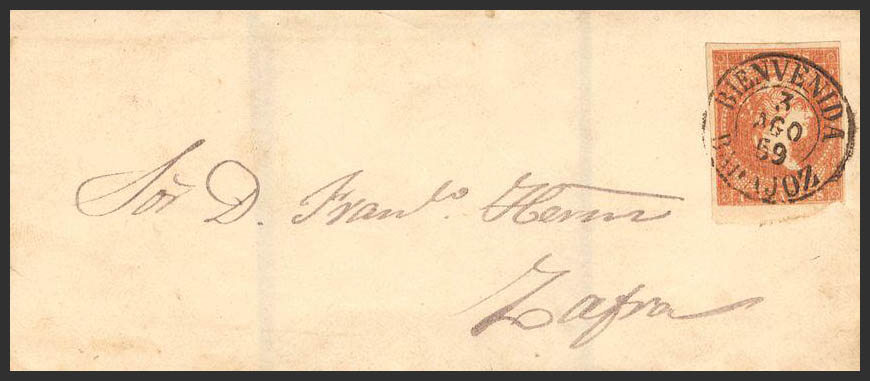 BIENVENIDA
3
AGO
59
BADAJOZ
Sõr D. Franco. Herrn
Zafra